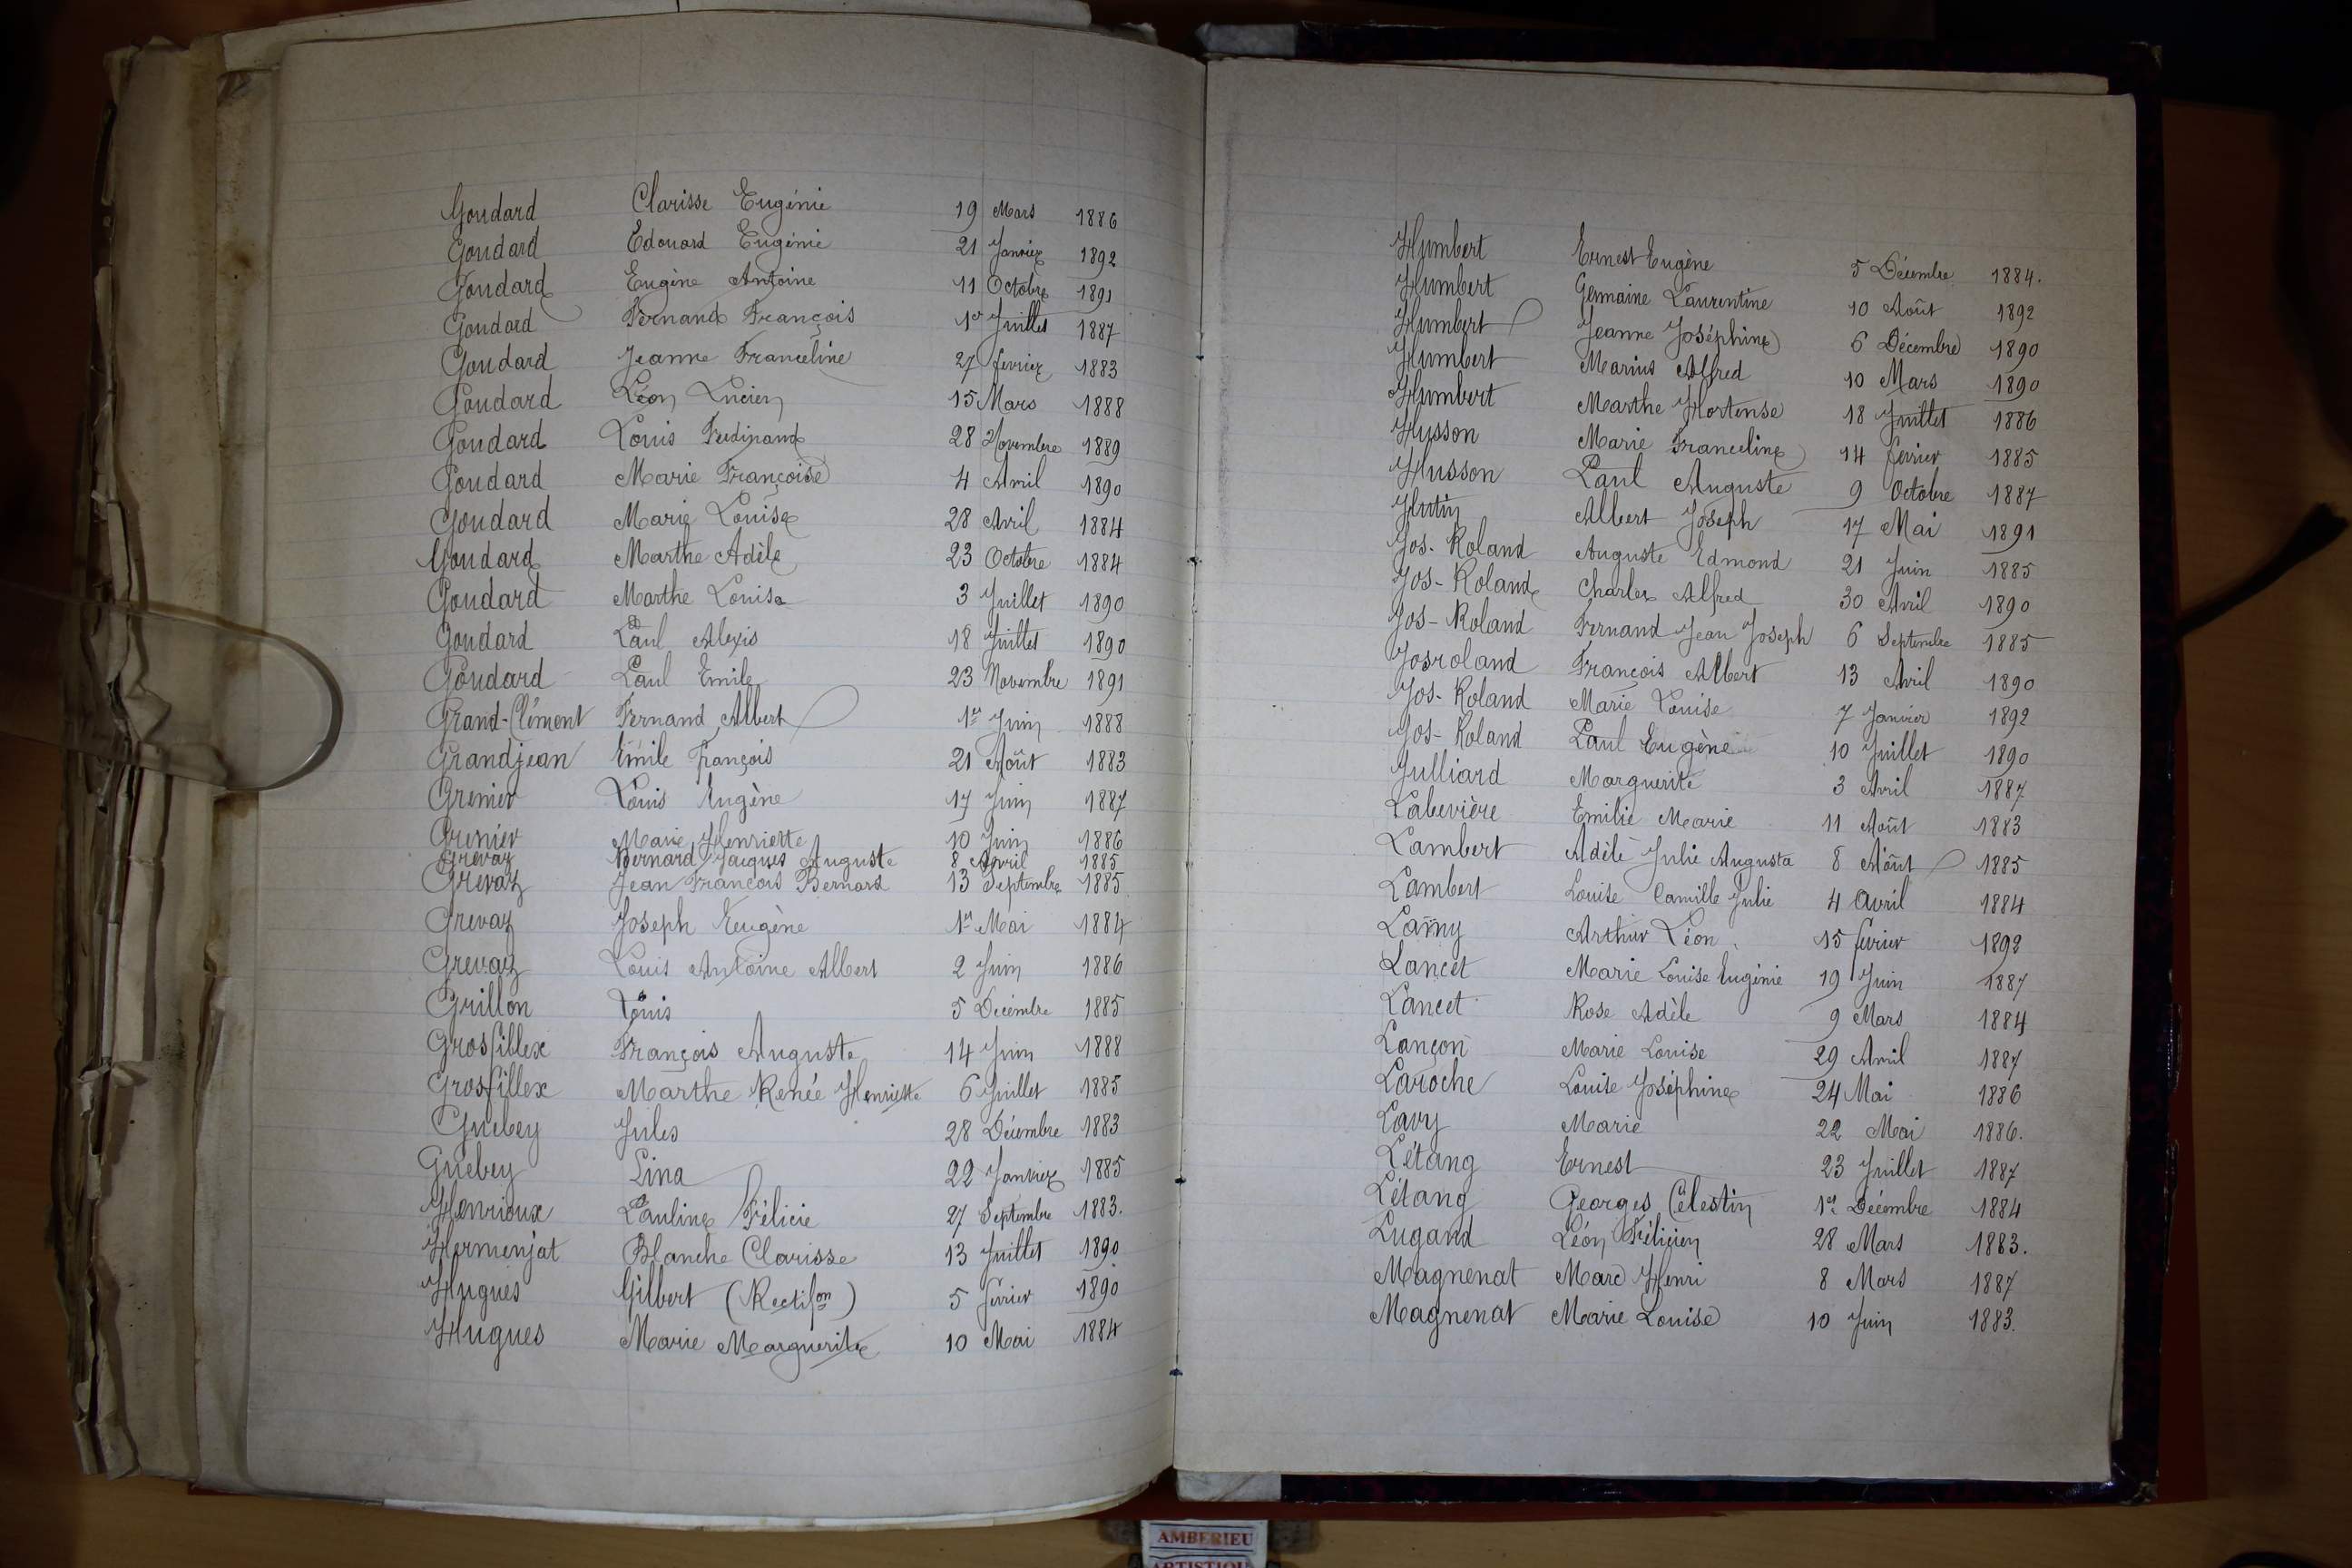 Goudard Clarisse Eugénie 19 Mars 1886
Goudard Edouard Eugénie 21 Janvier 1892
Goudard Eugène Antoine 11 Octobre 1891
Goudard Fernand François 1er Juillet 1887
Goudard Jeanne Franceline 27 février 1883
Goudard Léon Lucien 15 Mars 1888
Goudard Louis Ferdinand 28 Novembre 1889
Goudard Marie Françoise 4 Avril 1890
Goudard Marie Louise 28 Avril 1884
Goudard Marthe Adèle 23 Octobre 1884
Goudard Marthe Louise 3 Juillet 1890
Goudard Paul Alexis 18 Juillet 1890
Goudard Paul Emile 23 Novembre 1891
Grand-Clément Fernand Albert 1er Juin 1888
Grandjean Emile François 21 Août 1883
Grenier Louis Eugène 17 Juin 1887
Grenier Marie Henriette 10 Juin 1886
Grevaz Bernard Jacques Auguste 8 Avril 1885
Grevaz Jean François Bernard 13 Septembre 1885
Grevaz Joseph Eugène 1er Mai 1884
Grevaz Louis Antoine Albert 2 Juin 1886
Grillon Louis 5 Décembre 1885
Grosfillex François Auguste 14 Juin 1888
Grosfillex Marthe Renée Henriette 6 Juillet 1885
Guebey Jules 28 Décembre 1883
Guebey Lina 22 Janvier 1885
Henrioux Pauline Félicie 27 Septembre 1883.
Hermenjat Blanche Clarisse 13 Juillet 1890
Hugues Gilbert (Rectifon) 5 février 1890
Hugues Marie Marguerite 10 Mai 1884
Humbert Ernest Eugène 5 Décembre 1884.
Humbert Germaine Laurentine 10 Août 1892
Humbert Jeanne Joséphine 6 Décembre 1890
Humbert Marius Alfred 10 Mars 1890
Humbert Marthe Hortense 18 Juillet 1886
Husson Marie Franceline 14 février 1885
Husson Paul Auguste 9 Octobre 1887
Hutin Albert Joseph 17 Mai 1891
Jos-Roland Auguste Edmond 21 Juin 1885
Jos-Roland Charles Alfred 30 Avril 1890
Jos-Roland Fernand Jean Joseph 6 Septembre 1885
Josroland François Albert 13 Avril 1890
Jos-Roland Marie Louise 7 Janvier 1892
Jos-Roland Paul Eugène 10 Juillet 1890
Julliard Marguerite 3 Avril 1887
Labevière Emilie Marie 11 Août 1883
Lambert Adèle Julie Augusta 8 Août 1885
Lambert Louise Camille Julie 4 Avril 1884
Lamy Arthur Léon 15 février 1892
Lancet Marie Louise Eugénie 19 Juin 1887
Lancet Rose Adèle 9 Mars 1884
Lançon Marie Louise 29 Avril 1887
Laroche Louise Joséphine 24 Mai 1886
Lavy Marie 22 Mai 1886.
Létang Ernest 23 Juillet 1887
Létang Georges Célestin 1er Décembre 1884
Lugand Léon Félicien 28 Mars 1883.
Magnenat Marc Henri 8 Mars 1887
Magnenat Marie Louise 10 Juin 1883.
AMBERIEU